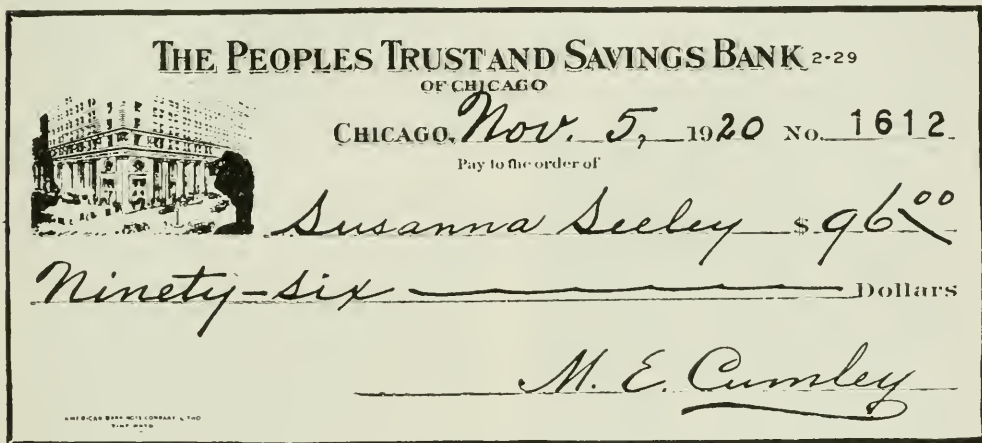 THE PEOPLES TRUST AND SAVINGS BANK 2-29
OF CHICAGO
CHICAGO, Nov. 5, 1920 No. 1612
Pay to the order of
Susanna Seeley $ 96 00
Ninety-six Dollars
M. E. Cumley
AMERICAN BANK NOTE COMPANY